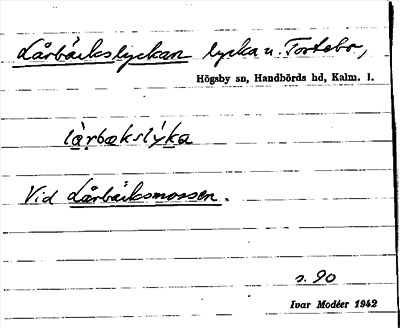 Lårbäckslyckan lycka u. Tortebo,
Högsby sn, Handbörds hd, Kalm. l.
làrbækslýka
Vid Lårbäcksmossen.
s. 90
Ivar Modéer 1942